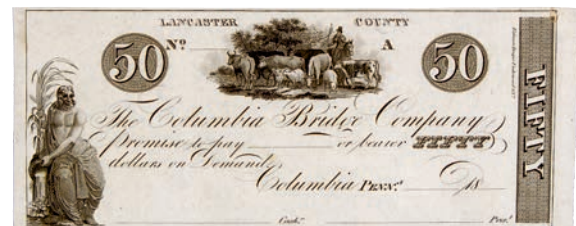 LANCASTER COUNTY
50 Nº A 50
The Columbia Bridge Company
promise to pay or bearer FIFTY
dollars on Demand,
Columbia PENN.ª 18
Cash.r Pres.t
FIFTY